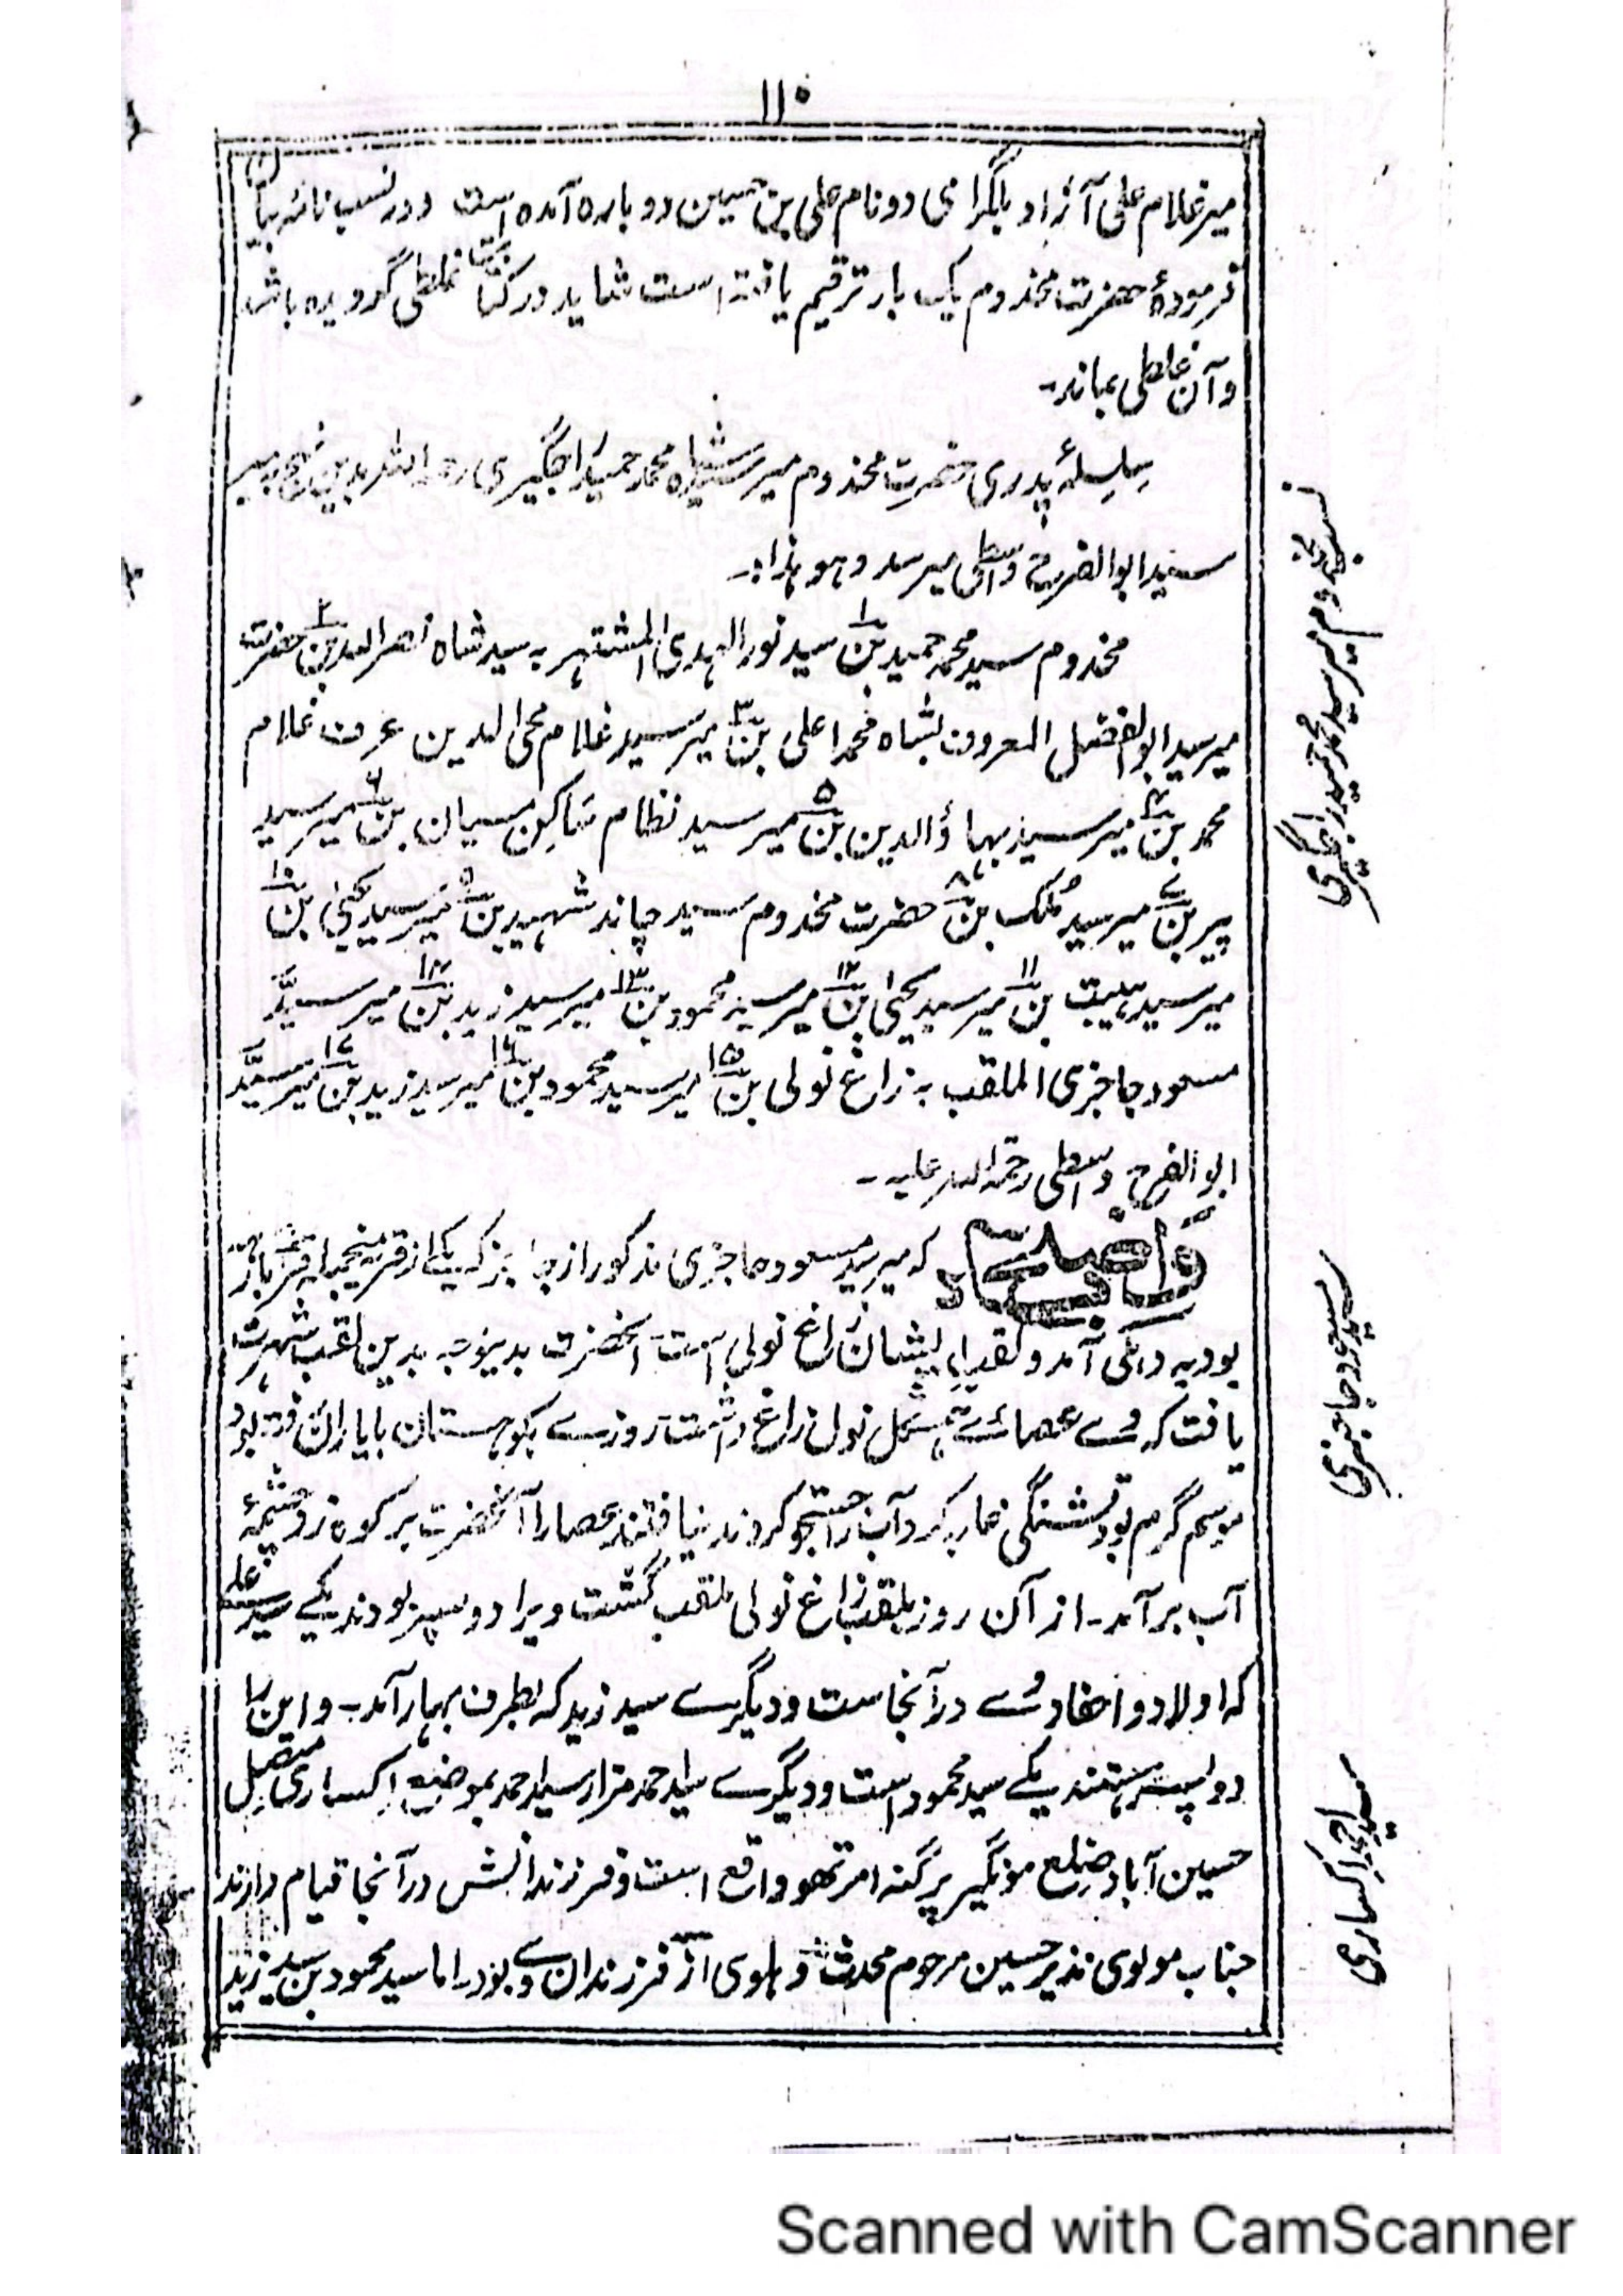 ۱۱۰
میر غلام علی آزاد بلگرامی دو نام علی بن حسین دو باره آمده است و در نسب نامه
فرمودهٔ حضرت مخدوم یک بار ترقیم یافته است شاید در کتابت غلطی گردیده باشد
و آن غلطی بماند۔
سلسلهٔ پدری حضرت مخدوم میر سید شاه محمد حمید راجگیری رحمة الله بدین نهج به میر
سید ابوالفرح واسطی میرسد و هو هذا:۔
مخدوم سید محمد حمید بن ۱ سید نور الهدی المشتهر به سید شاه نصر الدین بن ۲ حضرت
میر سید ابوالفضل المعروف بشاه محمد اعلی بن ۳ میر سید غلام محی الدین عرف غلام
محمد بن ۴ میر سید بهاؤالدین بن ۵ میر سید نظام ساکن مسیان بن ۶ میر سید
پیر بن ۷ میر سید ملک بن ۸ حضرت مخدوم سید چاند شهید بن ۹ میر سید یحییٰ بن ۱۰
میر سید هیبت بن ۱۱ میر سید یحییٰ بن ۱۲ میر سید محمود بن ۱۳ میر سید زید بن ۱۴ میر سید
مسعود جاجنری الملقب به زاغ نولی بن ۱۵ میر سید محمود بن ۱۶ میر سید زید بن ۱۷ میر سید
ابوالفرح واسطی رحمة الله علیه۔
واضح باد که میر سید مسعود جاجنری مذکور از که یکے از
بود به دهلی آمد و لقب ایشان زاغ نولی است آنحضرت بدینوجه بدین لقب شهرت
یافت که وے عصائے بشکل نول زاغ داشت روزے بکوهستان با یاران رفته بود
موسم گرم بود تشنگی غلبه کرد آب را جستجو کردند نیافتند عصا را آنحضرت بر کوه زد چشمهٔ
آب بر آمد۔ از آن روز بلقب زاغ نولی ملقب گشت ویرا دو پسر بودند یکے سید علی
که اولاد و احفاد وے در آنجاست و دیگرے سید زید که بطرف بهار آمد۔ و این را
دو پسر هستند یکے سید محمود است و دیگرے سید احمد مزار سید احمد بموضع اکساری متصل
حسین آباد ضلع مونگیر پرگنه امرتهو واقع است و فرزندانش در آنجا قیام دارند
جناب مولوی نذیر حسین مرحوم محدث دهلوی از فرزندان وے بود۔ اما سید محمود بن سید زید
نسب مخدوم میر سید محمد حمید راجگیری
سید مسعود جاجنری
سید احمد اکساری
Scanned with CamScanner